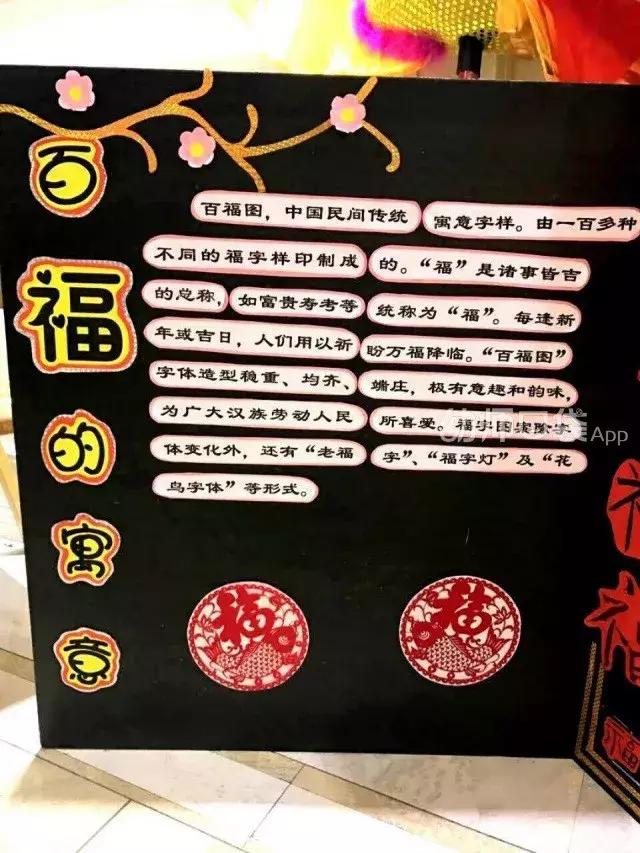 百福的寓意
百福图，中国民间传统寓意字样。由一百多种
不同的福字样印制成的。“福”是诸事皆吉
的总称，如富贵寿考等统称为“福”。每逢新
年或吉日，人们用以祈盼万福降临。“百福图”
字体造型稳重、均齐、端庄，极有意趣和韵味，
为广大汉族劳动人民所喜爱。福字图案除字
体变化外，还有“老福字”、“福字灯”及“花
鸟字体”等形式。
福
福
福
App